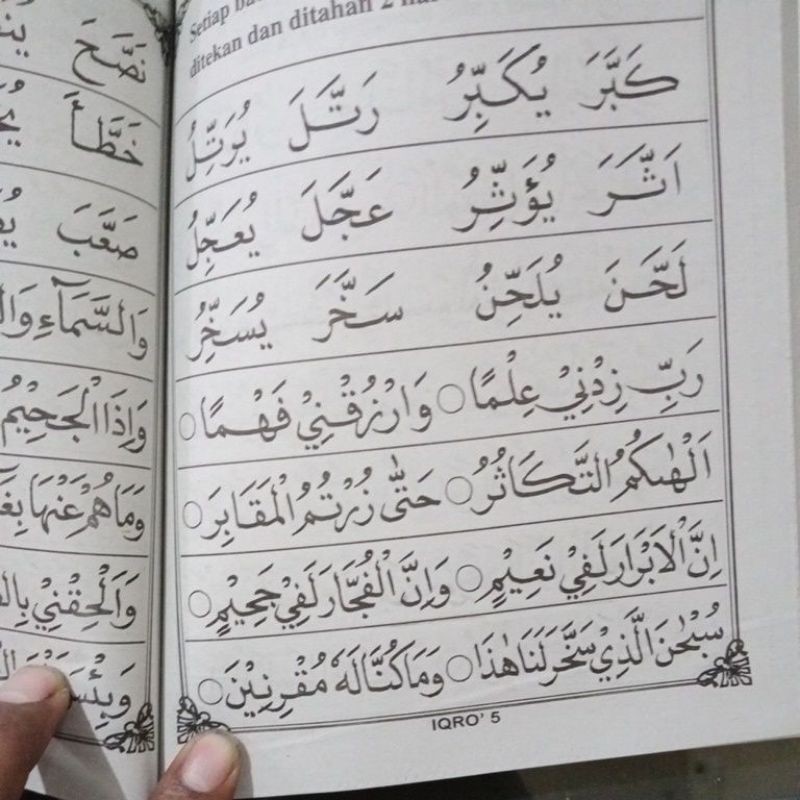 Setiap
ditekan dan ditahan 2
كَبَّرَ يُكَبِّرُ رَتَّلَ يُرَتِّلُ
اَثَّرَ يُؤَثِّرُ عَجَّلَ يُعَجِّلُ
لَحَّنَ يُلَحِّنُ سَخَّرَ يُسَخِّرُ
رَبِّ زِدْنِيْ عِلْمًا ○ وَارْزُقْنِيْ فَهْمًا ○
اَلْهٰىكُمُ التَّكَاثُرُ ○ حَتّٰى زُرْتُمُ الْمَقَابِرَ ○
اِنَّ الْاَبْرَارَ لَفِيْ نَعِيْمٍ ○ وَاِنَّ الْفُجَّارَ لَفِيْ جَحِيْمٍ ○
سُبْحٰنَ الَّذِيْ سَخَّرَ لَنَا هٰذَا ○ وَمَا كُنَّا لَهٗ مُقْرِنِيْنَ ○
IQRO' 5
نَصَّحَ
خَطَّأَ
صَعَّبَ
وَالسَّمَآءِ
وَاِذَا الْجَحِيْمُ
وَمَا هُمْ عَنْهَا
وَاَلْحِقْنِيْ
وَبِئْسَ